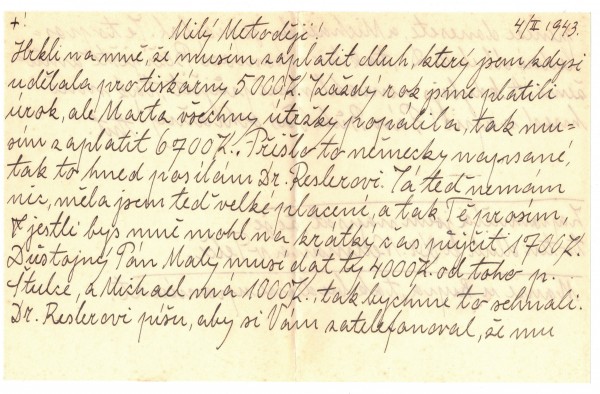 +
4/II. 1943.
Milý Metoději!
Hrkli na mně, že musím zaplatit dluh, který jsem kdysi
udělala pro tiskárny 5000 K. Každý rok jsme platili
úrok, ale Marta všechny útržky popálila, tak mu=
sím zaplatit 6700 K. Přišlo to německy napsané,
tak to hned posílám Dr. Reslerovi. Já teď nemám
nic, měla jsem teď velké placení, a tak Tě prosím,
jestli bys mně mohl na krátký čas půjčit 1700 K.
Důstojný Pán Malý musí dát ty 4000 K. od toho p.
Štulce, a Michael má 1000 K., tak bychme to sehnali.
Dr. Reslerovi píšu, aby si Vám zatelefonoval, že mu